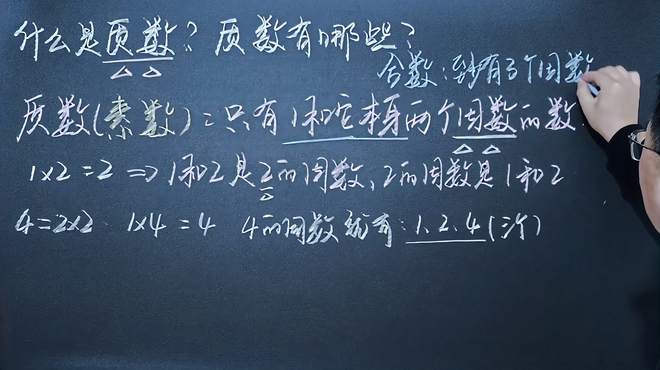 什么是质数？质数有哪些？
合数：至少有3个因数
质数(素数)：只有1和它本身两个因数的数.
1×2=2 => 1和2是2的因数、2的因数是1和2
4=2×2 1×4=4 4的因数就有：1、2、4(三个)